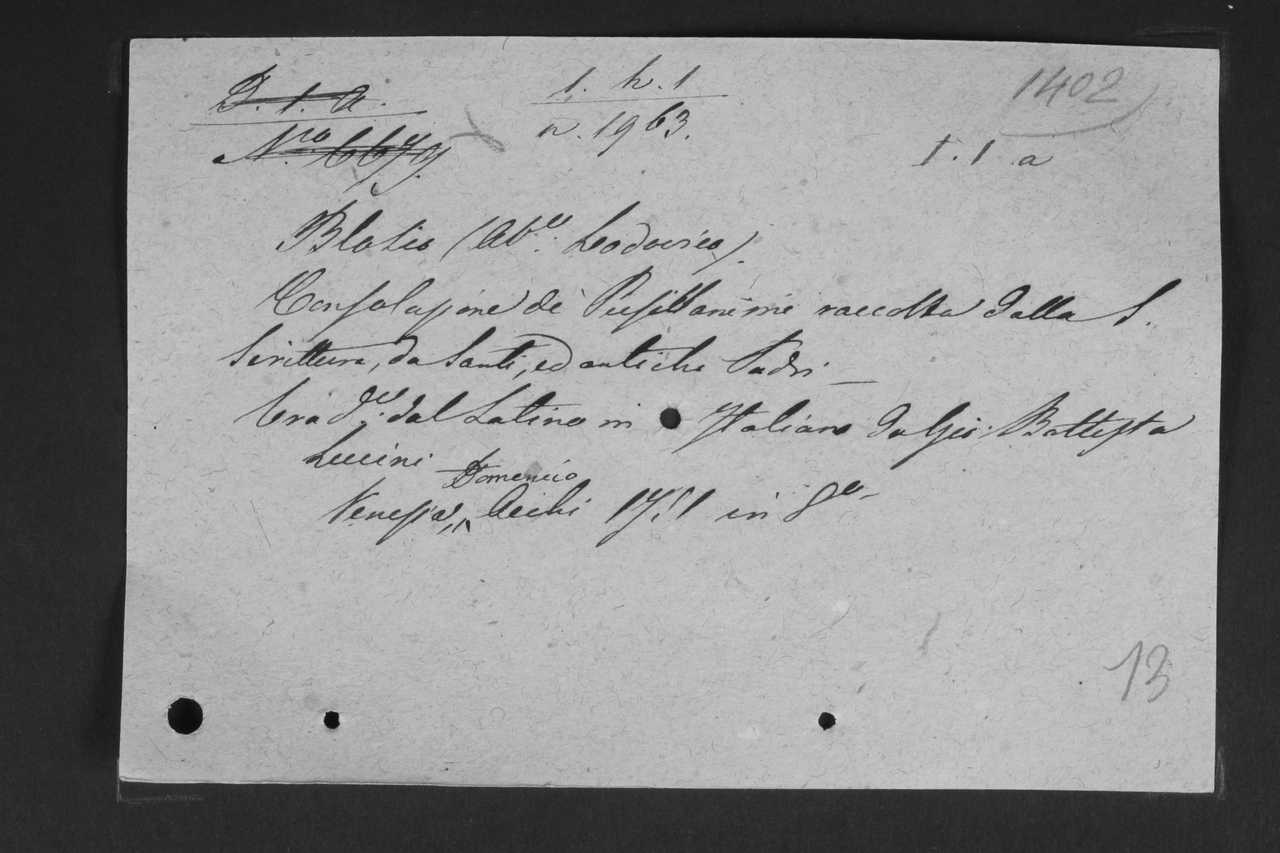 I. 1. a.
Nro 6679.
1. h. 1
n. 1963.
1402
I. 1 a
Blosio (Abe. Lodovico).
Consolazione de Pusillanimi raccolta dalla S.
Scrittura, da Santi, ed antichi Padri —
trade. dal Latino in Italiano da Gio: Battista
Lucini
Domenico
Venezia, 1751 in 8o
13